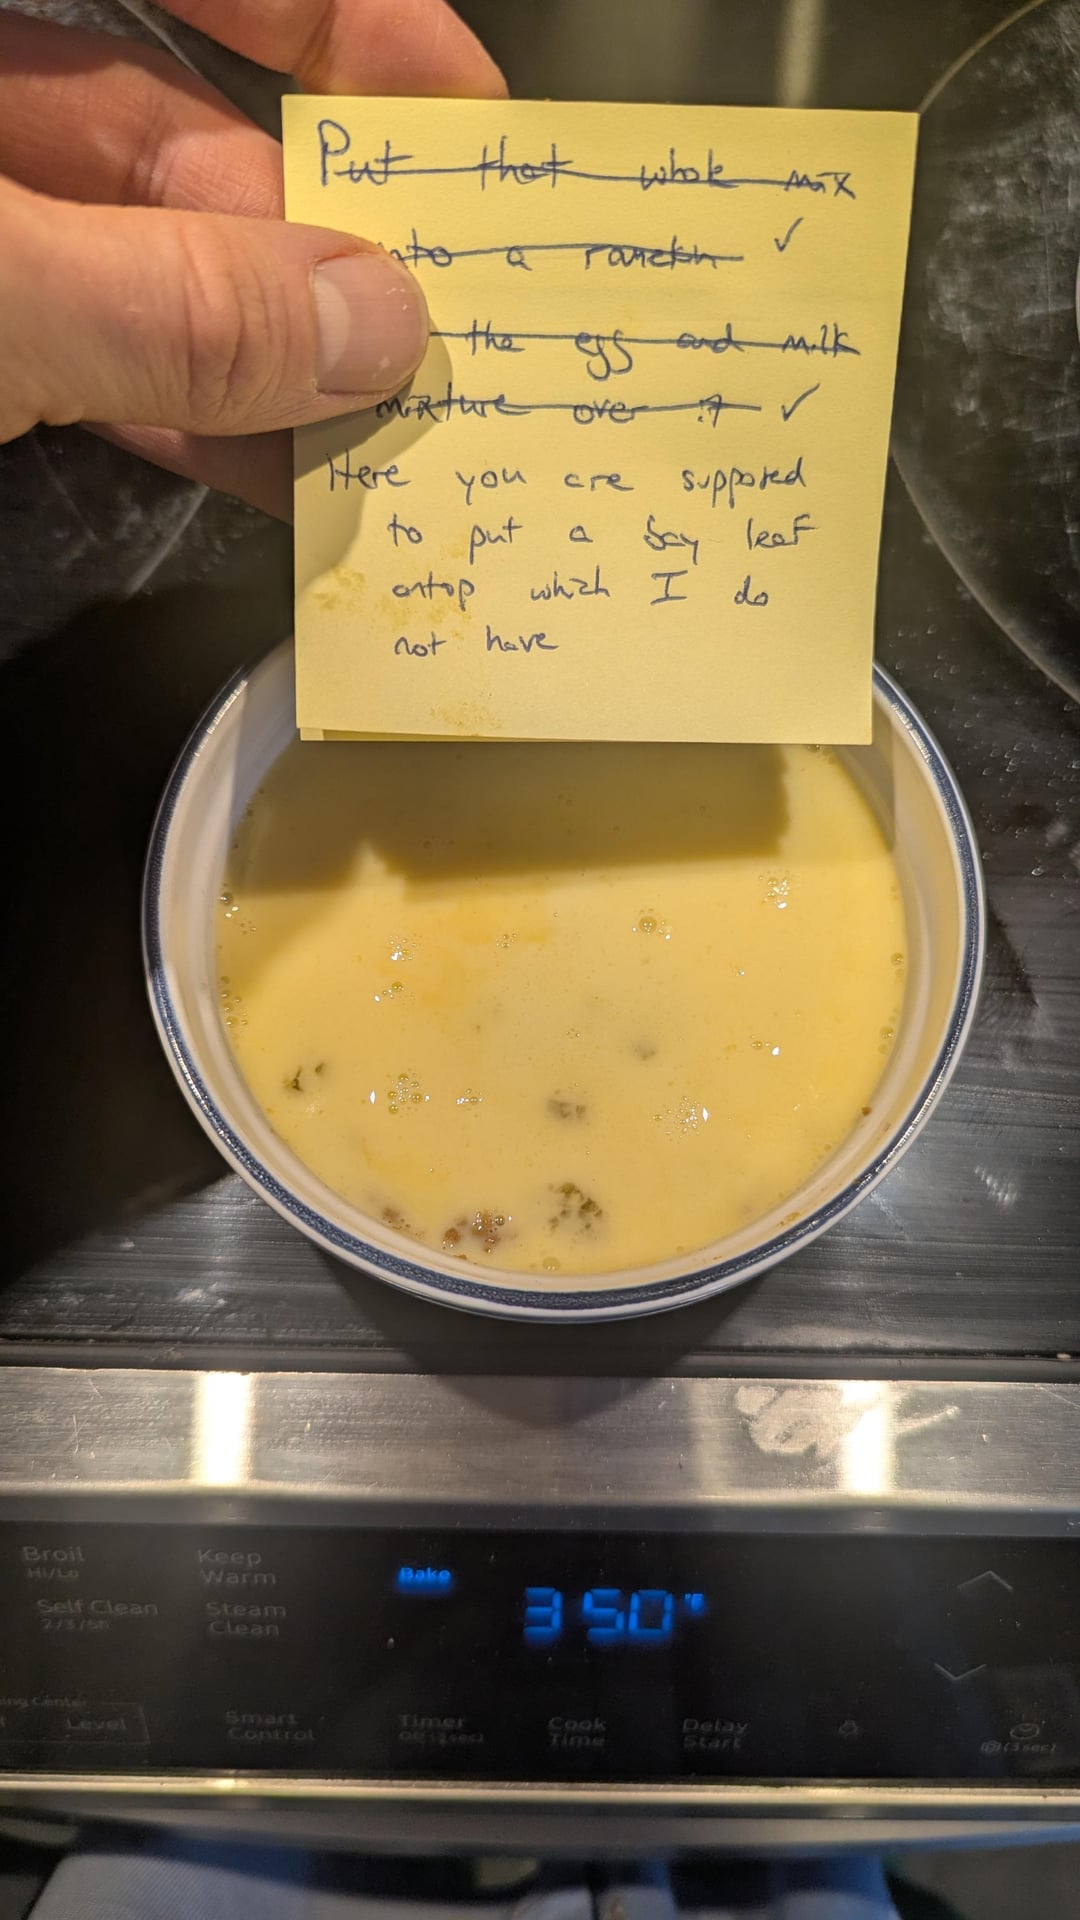 Put that whole mix
into a ramekin ✓
the egg and milk
mixture over it ✓
Here you are supposed
to put a bay leaf
ontop which I do
not have
Broil
Hi/Lo
Keep
Warm
Bake
350°F
Self Clean
2/3/5h
Steam
Clean
Level
Smart
Control
Timer
Cook
Time
Delay
Start
(3sec)